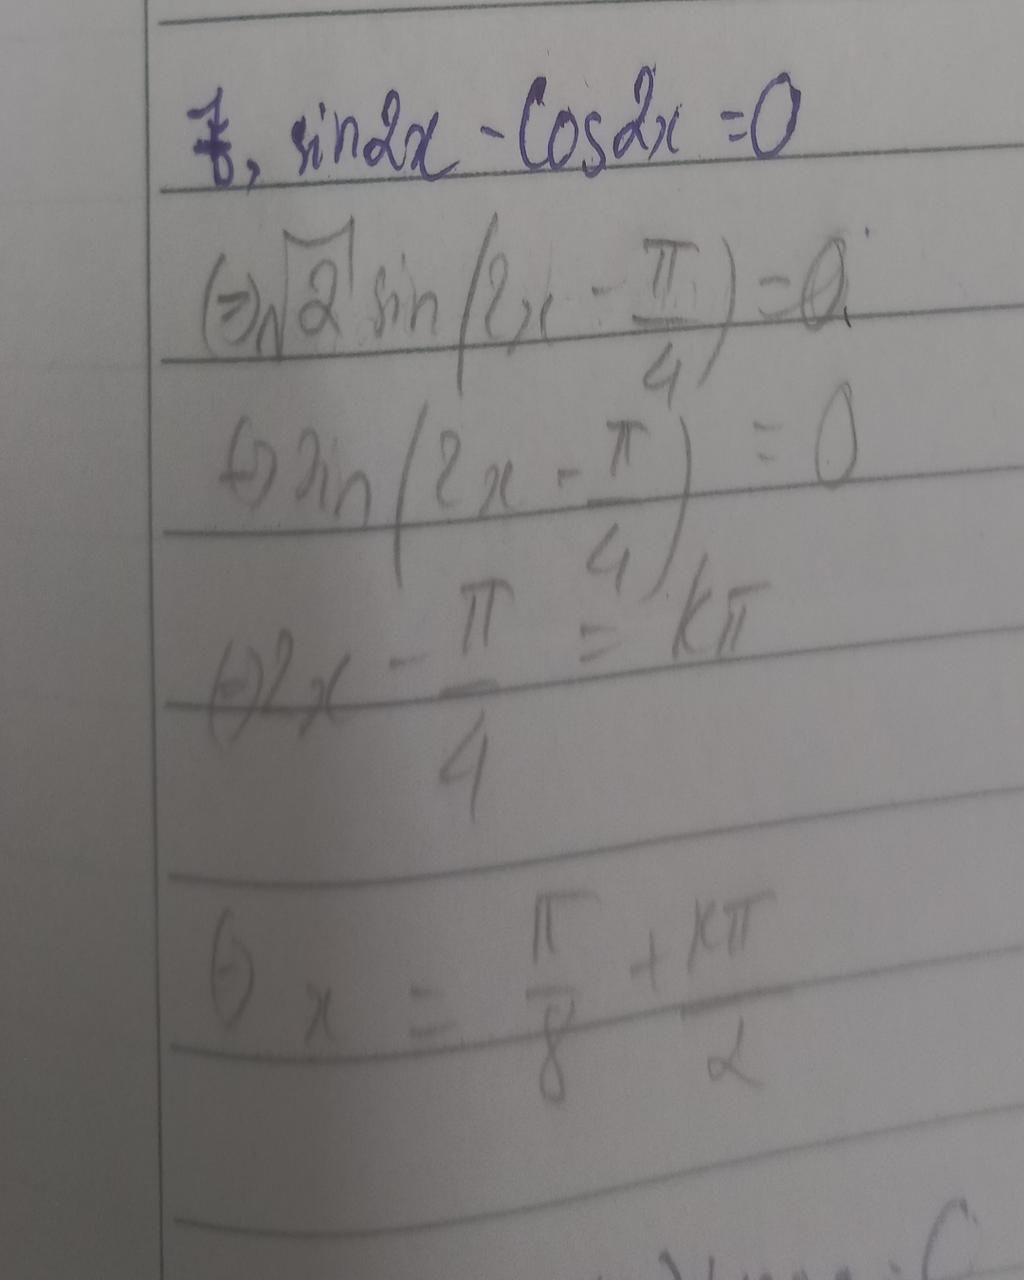 7, sin2x - Cos2x = 0
(=) √2 sin(2x - π/4) = 0
(=) sin(2x - π/4) = 0
(=) 2x - π/4 = kπ
(=) x = π/8 + kπ/2